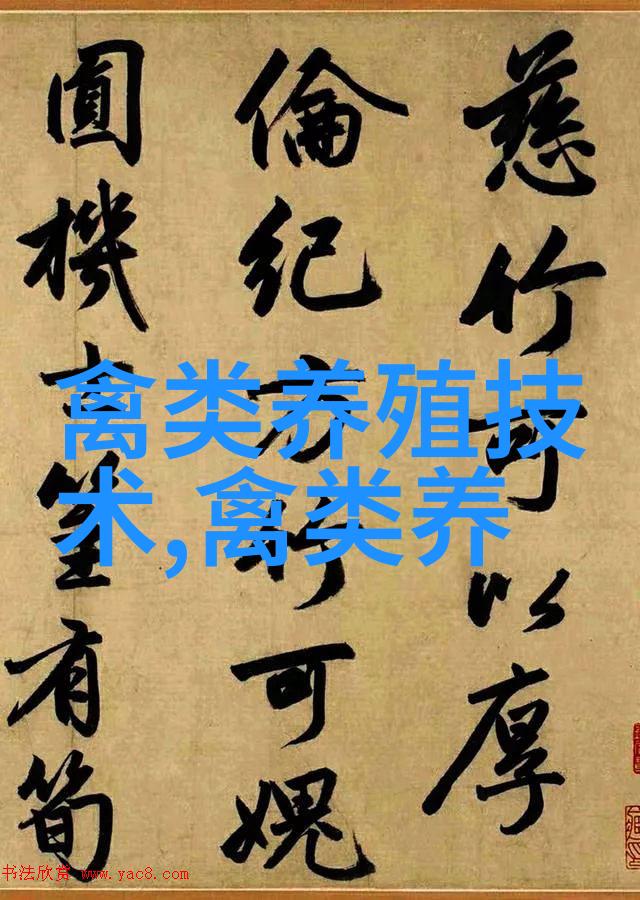 慈竹可以厚
倫紀方竹可媿
圓機有筍
禽类养殖技
术,禽类养
书法欣赏 www.yac8.com